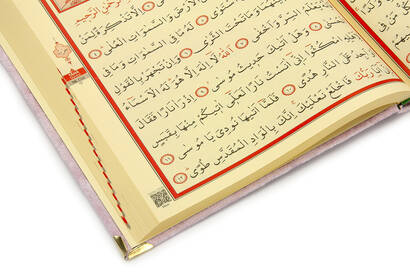 الرَّحْمٰنِ الرَّحِيمِ
اِلَّا تَذْكِرَةً لِمَنْ
الْاَرْضَ وَالسَّمٰوَاتِ الْعُلٰى
لَهُ مَا فِي السَّمٰوَاتِ وَمَا فِي
بَيْنَهُمَا وَمَا تَحْتَ الثَّرٰى وَاِنْ تَجْهَرْ بِالْقَوْلِ
السِّرَّ وَاَخْفٰى اَللّٰهُ لَا اِلٰهَ اِلَّا هُوَ لَهُ الْاَسْمَاءُ
وَهَلْ اَتٰيكَ حَدِيثُ مُوسٰى اِذْ رَاٰ نَارًا فَقَالَ
امْكُثُوا اِنِّي اٰنَسْتُ نَارًا لَعَلِّي اٰتِيكُمْ مِنْهَا بِقَبَسٍ
عَلَى النَّارِ هُدًى فَلَمَّا اَتٰيهَا نُودِيَ يَا مُوسٰى
رَبُّكَ فَاخْلَعْ نَعْلَيْكَ اِنَّكَ بِالْوَادِ الْمُقَدَّسِ طُوًى